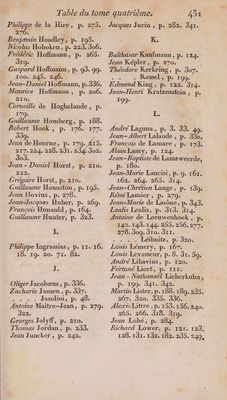 Table du tome quatrième. 451
Philippe de la Hire, p. 275.
276.
Benjamin Hoadley, p. 195.
Nicolas Hoboken, p. 223. 306.
Frédéric Hoffmann, p. 265.
319.
Gaspard Hoffmann, p. 93. 99.
100. 245. 246.
Jean-Daniel Hoffmann, p. 336.
Maurice Hoffmann, p. 206.
210.
Corneille de Hoghelande, p.
179.
Guillaume Homberg, p. 188.
Robert Hook, p. 176. 177.
339.
Jean de Hoorne, p. 179. 215.
217. 224. 228. 231. 234. 302.
303.
Jean-Daniel Horst, p. 210.
222.
Grégoire Horst, p. 210.
Guillaume Houston, p. 195.
Jean Hovius, p. 278.
Jean-Jacques Huber, p. 269.
François Hunauld, p. 164.
Guillaume Hunter, p. 223.
I.
Philippe Ingrassias, p. 11. 16.
18. 19. 20. 71. 82.
J.
Oliger Jacobæus, p. 336.
Zacharie Jansen, p. 337.
. . . . Jasolini, p. 48.
Antoine Maître-Jean, p. 279.
322.
Georges Jolyff, p. 210.
Thomas Jordan, p. 233.
Jean Juncker, p. 242.
Jacques Jurin, p. 282. 341.
K.
Balthasar Kaufmann, p. 124.
Jean Képler, p. 270.
Théodore Kerkring, p. 307.
. . . . Kessel, p. 199.
Edmond King, p. 122. 314.
Jean-Henri Kratzenstein, p.
199.
L.
André Laguna, p. 3. 33. 49.
Jean-Albert Lalande, p. 336.
François de Lamure, p. 173.
Alain Lamy, p. 124.
Jean-Baptiste de Lamzweerde,
p. 180.
Jean-Marie Lancisi, p. 9. 161.
162. 264. 265. 314.
Jean-Chrétien Lange, p. 139.
Rémi Lasnier, p. 279.
Jean-Marie de Lasône, p. 343.
Lealis Lealis, p. 313. 314.
Antoine de Leeuwenhoek, p.
142. 143. 144. 255. 256. 277.
278. 309. 310. 311.
. . . . Leibnitz, p. 320.
Louis Lémery, p. 167.
Louis Levasseur, p. 8. 31. 59.
André Libavius, p. 120.
Fortuné Licet, p. 111.
Jean-Nathanaël Lieberkuhn,
p. 199. 341. 342.
Martin Lister, p. 188. 189. 235.
267. 320. 333. 336.
Alexis Littre, p. 153. 156. 240.
265. 266. 318. 319.
Jean Lobé, p. 284.
Richard Lower, p. 121. 123.
128. 131. 132. 182. 235. 249.